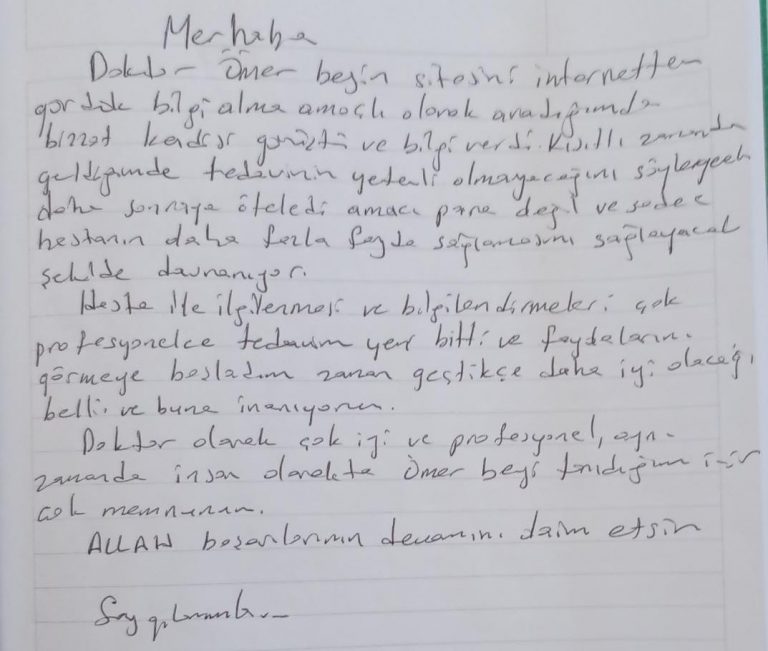 Merhaba
Doktor Ömer beyin sitesini internetten
gördük bilgi alma amaçlı olarak aradığımda
bizzat kendisi görüştü ve bilgi verdi. Kısıtlı zamanda
geldiğimde tedavinin yeterli olmayacağını söyleyerek
daha sonraya öteledi amacı para değil ve sadece
hastanın daha fazla fayda sağlamasını sağlayacak
şekilde davranıyor.
Hasta ile ilgilenmesi ve bilgilendirmeleri çok
profesyonelce tedavim yeni bitti ve faydalarını
görmeye başladım zaman geçtikçe daha iyi olacağı
belli ve buna inanıyorum.
Doktor olarak çok iyi ve profesyonel, aynı
zamanda insan olarakta Ömer beyi tanıdığım için
çok memnunum.
ALLAH başarılarının devamını daim etsin
Saygılarımla